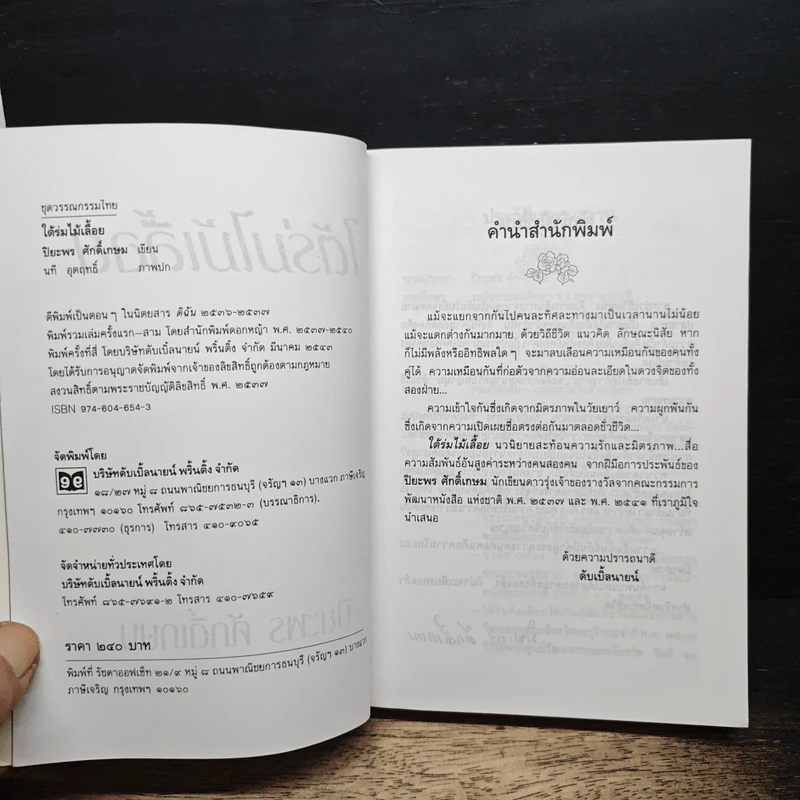 ชุดวรรณกรรมไทย
ใต้ร่มไม้เลื้อย
ปิยะพร ศักดิ์เกษม เขียน
นที อุตฤทธิ์ ภาพปก
ตีพิมพ์เป็นตอน ๆ ในนิตยสาร ดิฉัน ๒๕๓๖-๒๕๓๗
พิมพ์รวมเล่มครั้งแรก-สาม โดยสำนักพิมพ์ดอกหญ้า พ.ศ. ๒๕๓๗-๒๕๔๐
พิมพ์ครั้งที่สี่ โดยบริษัทดับเบิ้ลนายน์ พริ้นติ้ง จำกัด มีนาคม ๒๕๔๓
โดยได้รับการอนุญาตจัดพิมพ์จากเจ้าของลิขสิทธิ์ถูกต้องตามกฎหมาย
สงวนสิทธิ์ตามพระราชบัญญัติลิขสิทธิ์ พ.ศ. ๒๕๓๗
ISBN 974-604-654-3
จัดพิมพ์โดย
บริษัทดับเบิ้ลนายน์ พริ้นติ้ง จำกัด
๑๘/๒๗ หมู่ ๘ ถนนพาณิชยการธนบุรี (จรัญฯ ๑๓) บางแวก ภาษีเจริญ
กรุงเทพฯ ๑๐๑๖๐ โทรศัพท์ ๘๖๕-๗๕๓๒-๓ (บรรณาธิการ)
๔๑๐-๗๗๓๐ (ธุรการ) โทรสาร ๔๑๐-๙๐๖๕
จัดจำหน่ายทั่วประเทศโดย
บริษัทดับเบิ้ลนายน์ พริ้นติ้ง จำกัด
โทรศัพท์ ๘๖๕-๗๖๙๑-๒ โทรสาร ๔๑๐-๗๖๕๙
ราคา ๒๔๐ บาท
พิมพ์ที่ รัชดาออฟเซ็ท ๒๑/๙ หมู่ ๘ ถนนพาณิชยการธนบุรี (จรัญฯ ๑๓) บางแวก
ภาษีเจริญ กรุงเทพฯ ๑๐๑๖๐
คำนำสำนักพิมพ์
แม้จะแยกจากกันไปคนละทิศละทางมาเป็นเวลานานไม่น้อย
แม้จะแตกต่างกันมากมาย ด้วยวิถีชีวิต แนวคิด ลักษณะนิสัย หาก
ก็ไม่มีพลังหรืออิทธิพลใด ๆ จะมาลบเลือนความเหมือนกันของคนทั้ง
คู่ได้ ความเหมือนกันที่ก่อตัวจากความอ่อนละเอียดในดวงจิตของทั้ง
สองฝ่าย...
ความเข้าใจกันซึ่งเกิดจากมิตรภาพในวัยเยาว์ ความผูกพันกัน
ซึ่งเกิดจากความเปิดเผยซื่อตรงต่อกันมาตลอดชั่วชีวิต...
ใต้ร่มไม้เลื้อย นวนิยายสะท้อนความรักและมิตรภาพ...สื่อ
ความสัมพันธ์อันสูงค่าระหว่างคนสองคน จากฝีมือการประพันธ์ของ
ปิยะพร ศักดิ์เกษม นักเขียนดาวรุ่งเจ้าของรางวัลจากคณะกรรมการ
พัฒนาหนังสือ แห่งชาติ พ.ศ. ๒๕๓๗ และ พ.ศ. ๒๕๔๑ ที่เราภูมิใจ
นำเสนอ
ด้วยความปรารถนาดี
ดับเบิ้ลนายน์